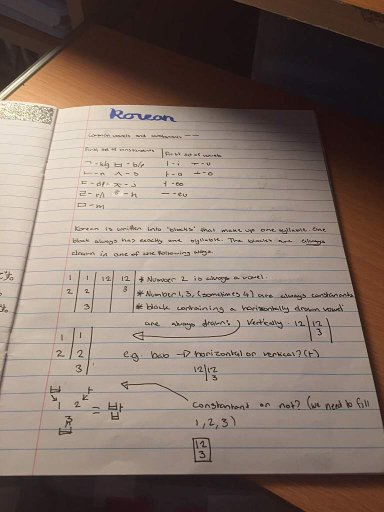 Korean
Common vowels and consonants
First set of consonants | First set of vowels
ㄱ - k/g ㅂ - b/p | ㅣ - i ㅜ - u
ㄴ - n ㅅ - s | ㅏ - a ㅗ - o
ㄷ - d/t ㅈ - j | ㅓ - eo
ㄹ - r/l ㅎ - h | ㅡ - eu
ㅁ - m
Korean is written into 'blocks' that make up one syllable. One
block always has exactly one syllable. The blocks are always
drawn in one of the following ways.
1 | 1 | 12 | 12 * Number 2 is always a vowel.
2 | 2 | | 3 * Number 1, 3, (sometimes 4) are always constanants
3 * block containing a horizontally drawn vowel
are always drawn: vertically. 12 | 12
3
1 | 1
2 | 2 e.g. bab → horizontal or vertical? (ㅏ)
3
12 | 12
3
ㅂ ㅏ
1 2 = 밥
3
ㅂ
Constanant or not? (we need to fill
1, 2, 3)
12
3